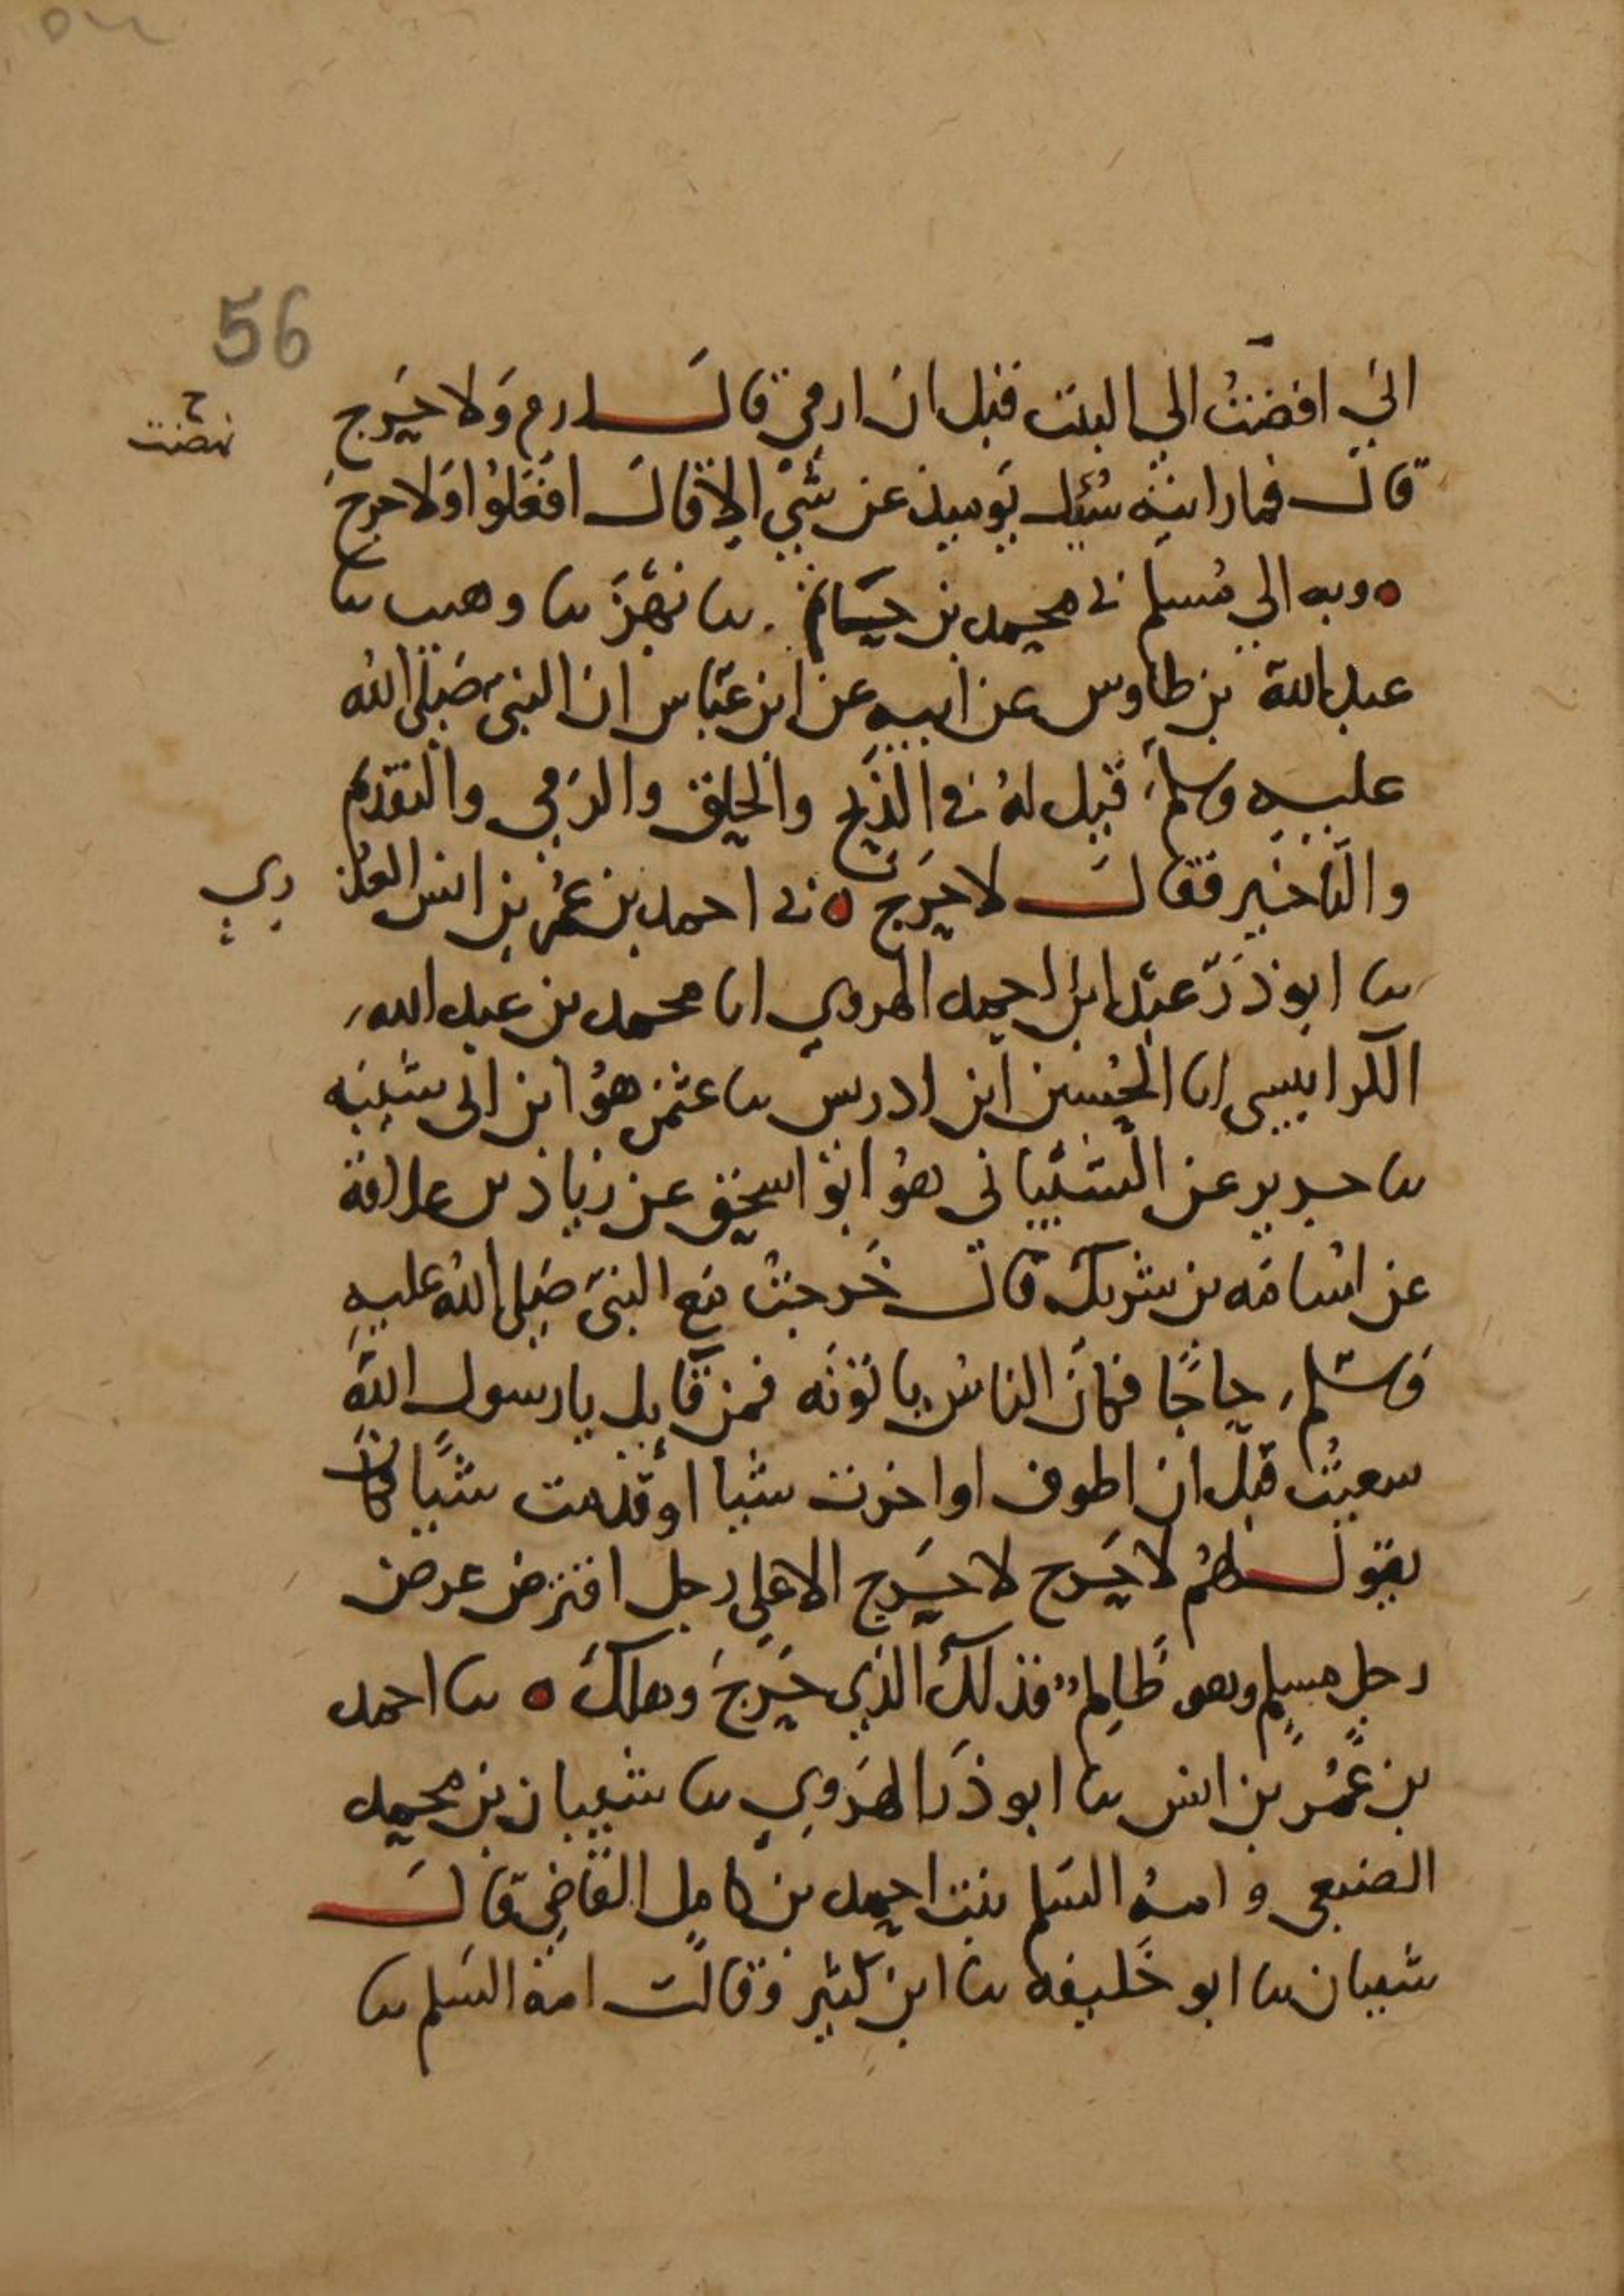 56
اني افضتُ الي البيت قبل ان ارمي قال ارم وَلا حَرج
قال فما راىته سُئل يوميذ عن شيءٍ الا قال افعَلوا وَلا حرج
ه وبه الي مُسلم ني محمد بن حَاتم نا بَهْز نا وهيب نا
عبد الله بن طاوس عن ابيه عن ابن عبّاس ان النبي صَلي الله
عليه وسلم قيل لهُ في الذبح والحلق والرَمي والتقديم
والتاخير فقال لا حَرج ه ني احمد بن عُمر بن انس العذ
ري
نا ابو ذرّ عبْد ابن احمد الهروي انا محمد بن عبد الله
الكرابيسي انا الحُسين ابن ادريس نا عثمن هوُ ابن ابي شيبَه
نا جرير عن الشيباني هوُ ابوُ اسحق عن زياد بن علاقة
عن اسَامَه بن شريك قال خَرجتُ مع النبيّ صَلى اللهُ عليهِ
وَسَلم حاجًا فكانَ الناسُ ياتونَه فمن قايل يا رسول الله
سعيتُ قبل ان اطوف او اخرت شيا او قدمت شيًا فكان
يقول لهُم لا حَرج لا حَرج الا علي رجل اقترض عرض
رجلٍ مسلمٍ وهو ظَالِم فذلكَ الذي حَرِجَ وهلكَ ه نا احمد
بن عُمَر بن انس نا ابو ذَر الهَروي نا شيبان بن محمد
الضبعي وامةُ السَلم بنت احمد بن كاملٍ القاضِي قال
شيبان نا ابو خَليفه نا ابن كثير وقالت امة السَلم نا